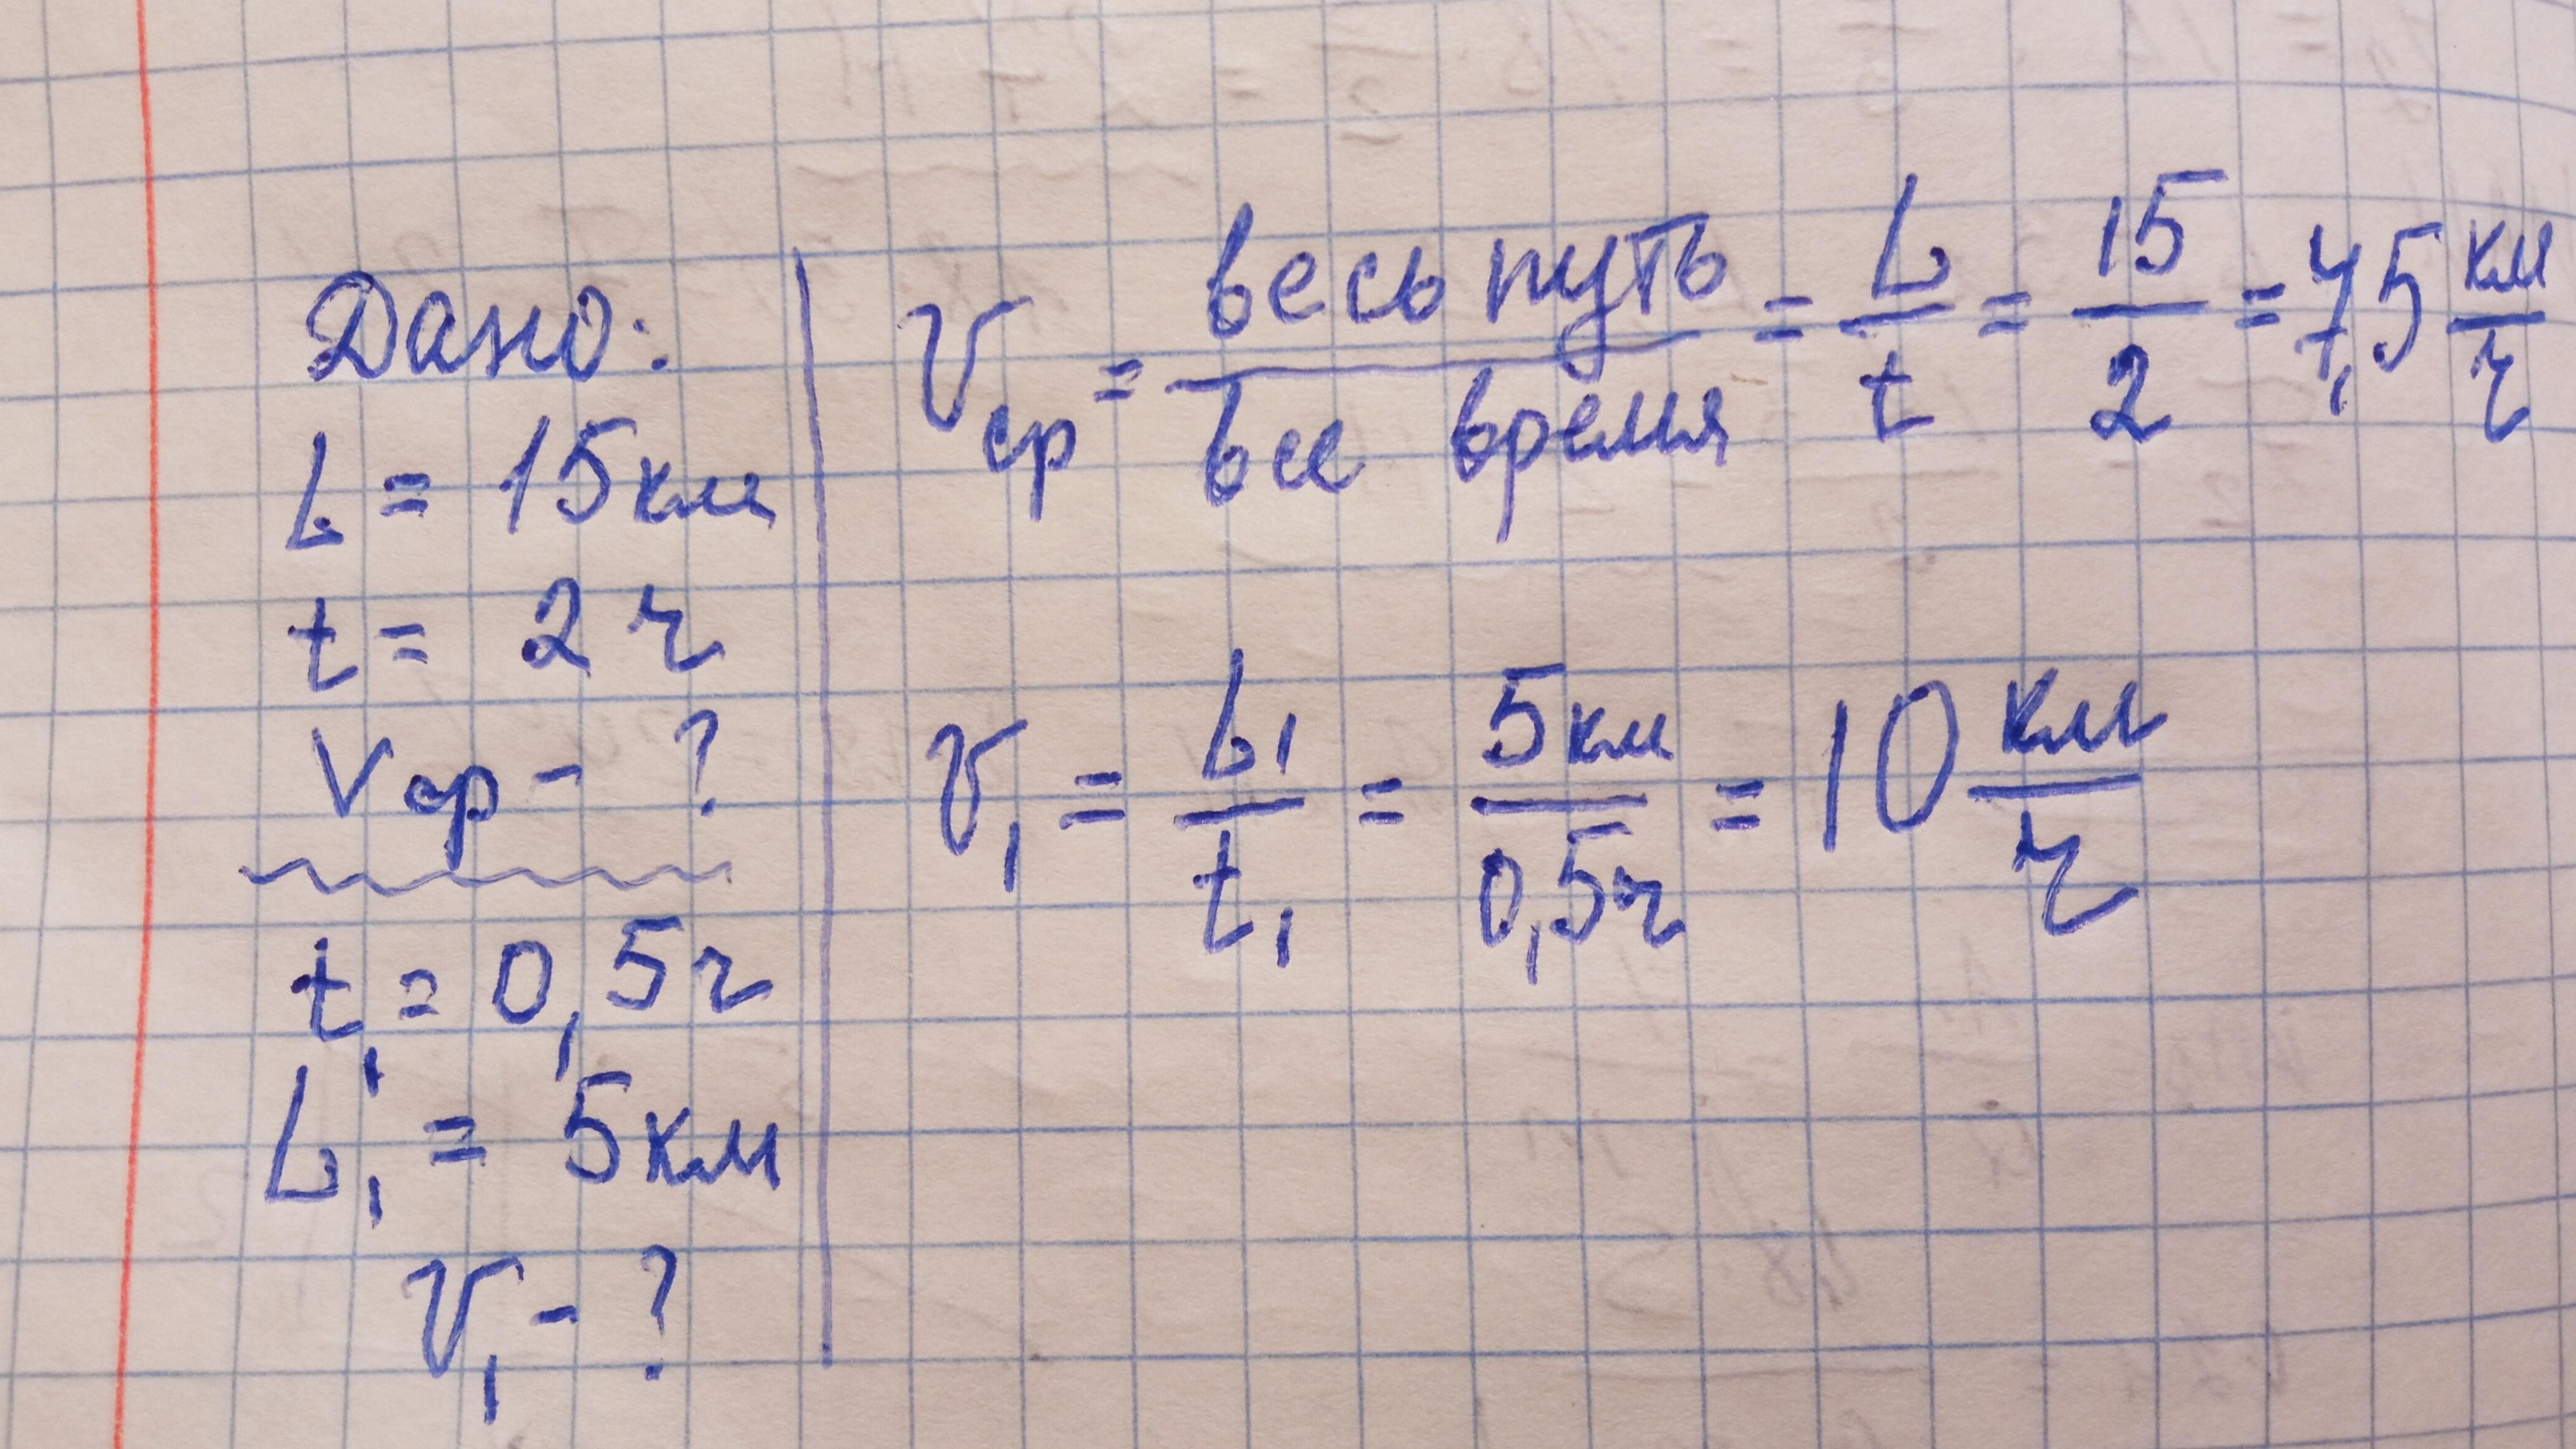 Дано:
L = 15 км
t = 2 ч
Vср - ?
t₁ = 0,5 ч
L₁ = 5 км
V₁ - ?
Vср = весь путь / все время = L / t = 15 / 2 = 7,5 км/ч
V₁ = L₁ / t₁ = 5 км / 0,5 ч = 10 км/ч